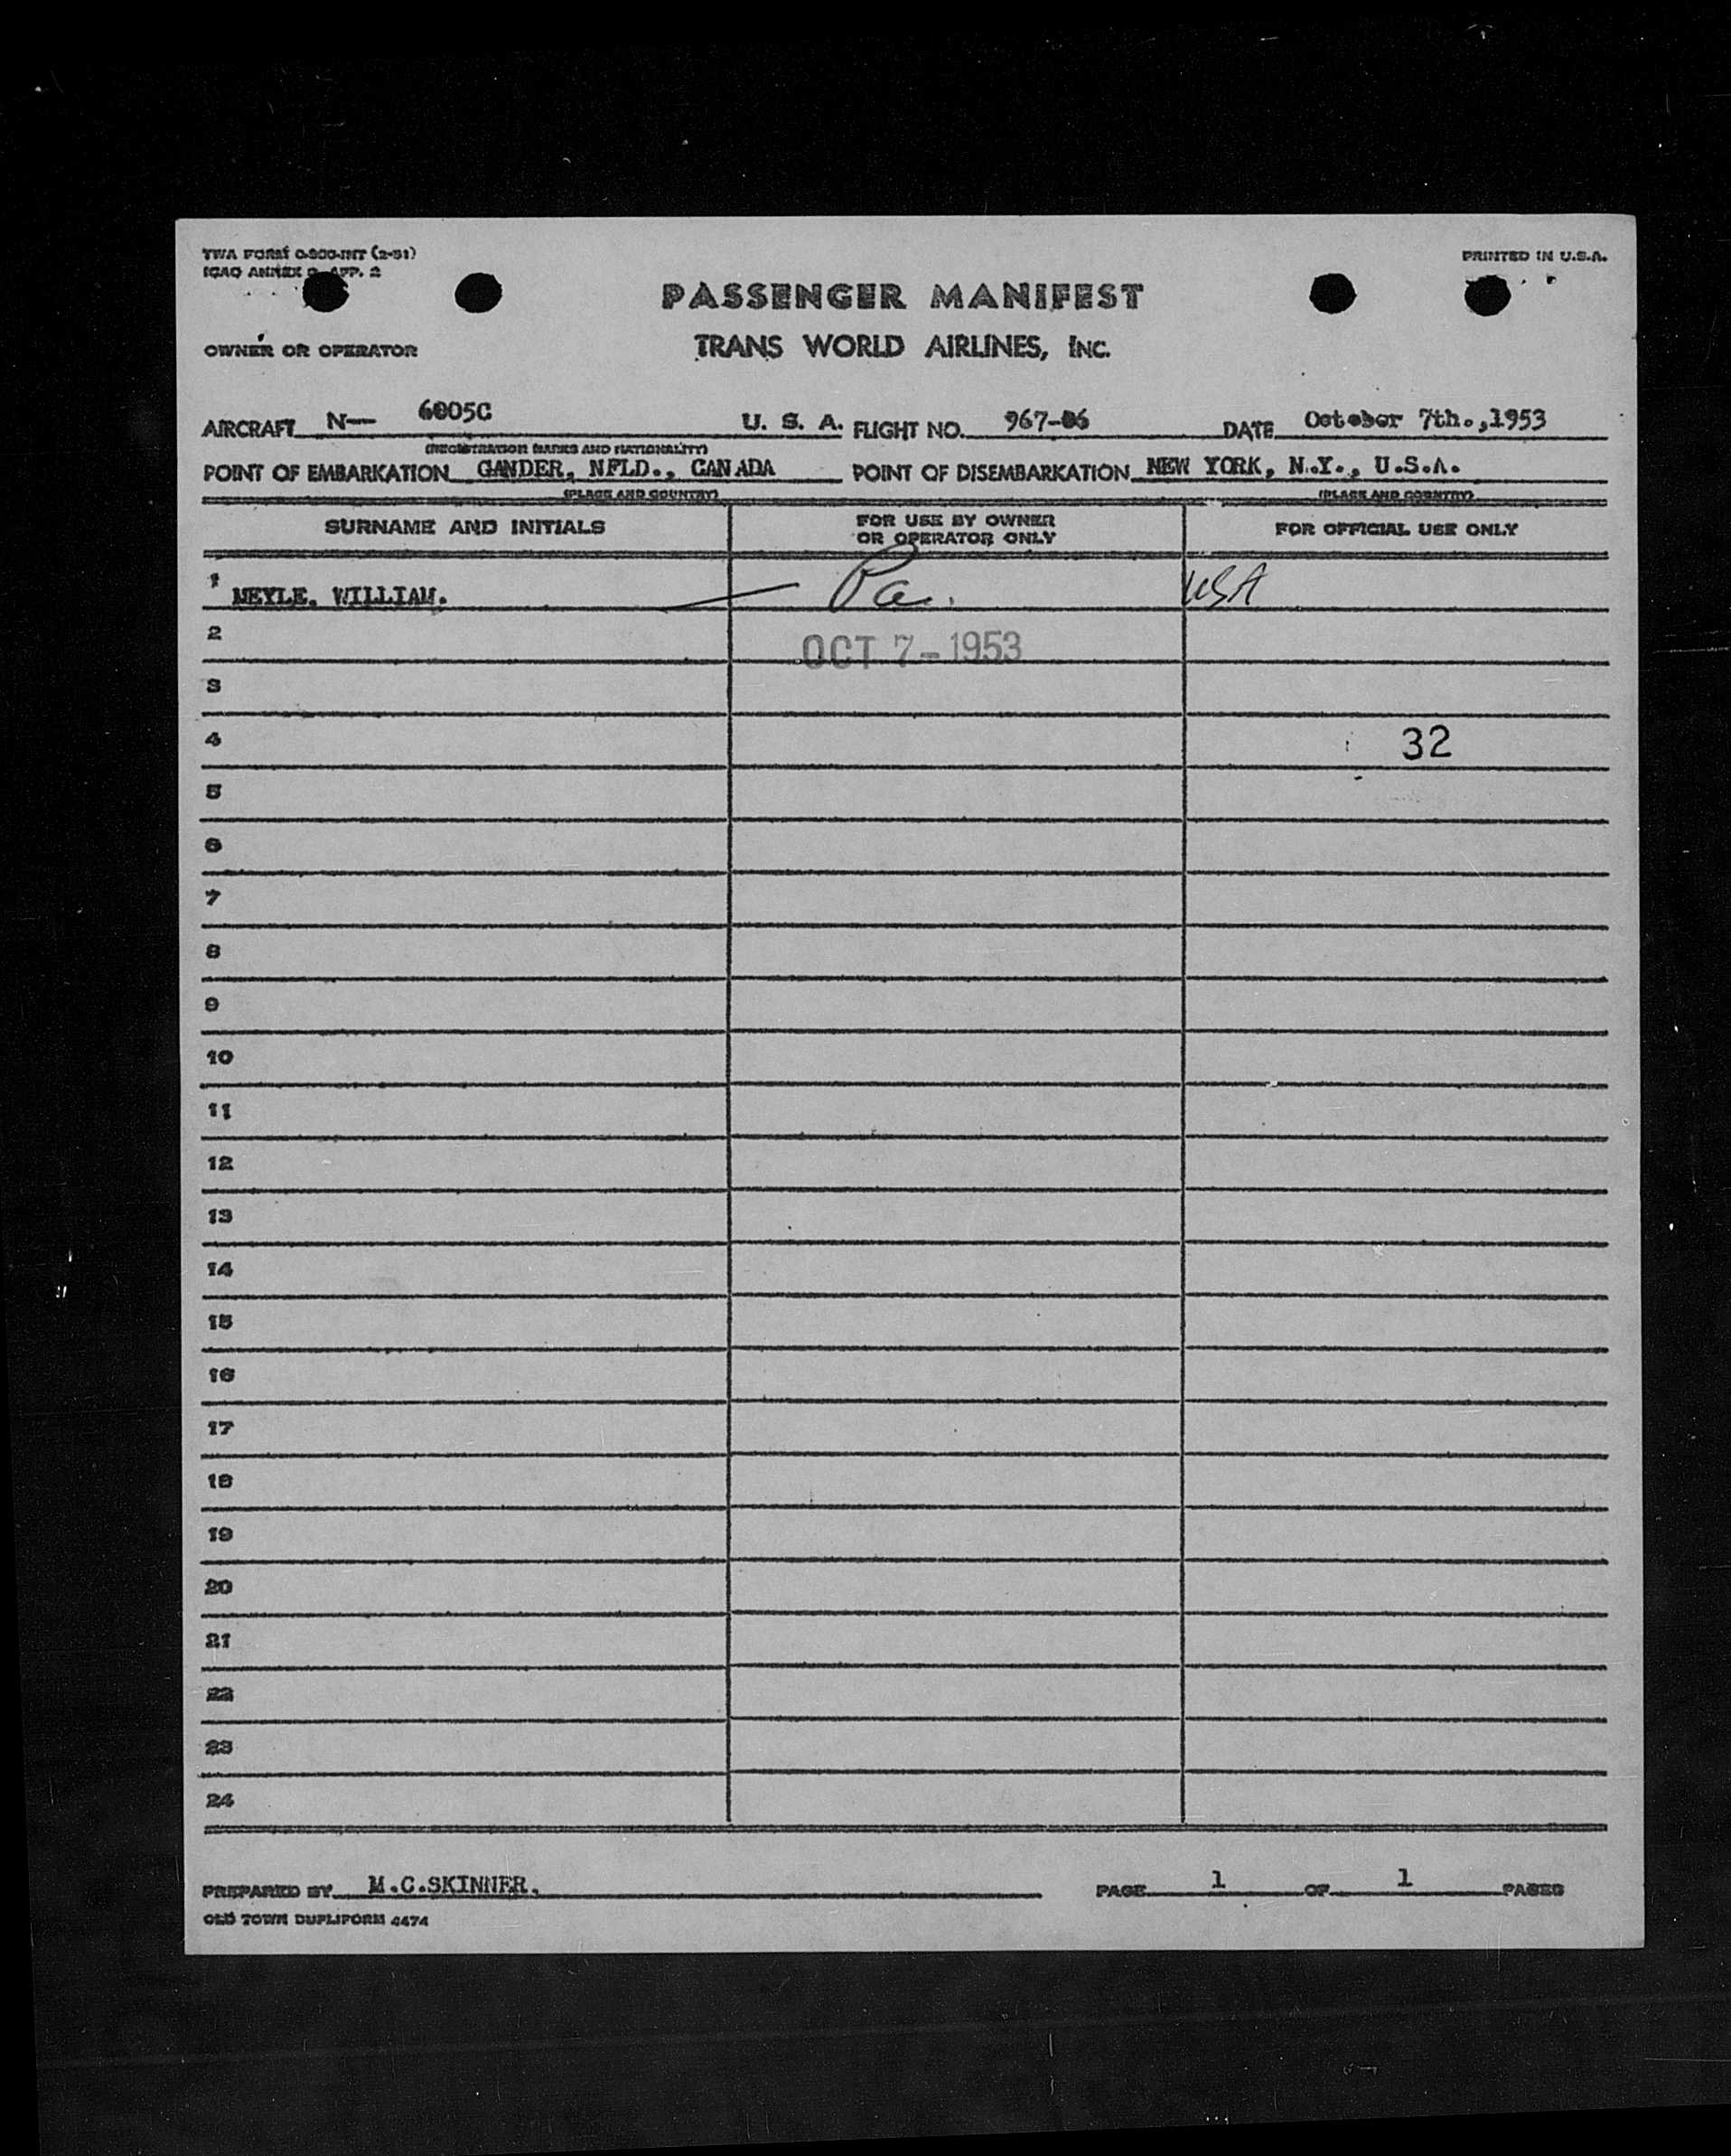 TWA FORM O-800-INT (2-51)
ICAO ANNEX 9, APP. 2
PRINTED IN U.S.A.
PASSENGER MANIFEST
OWNER OR OPERATOR TRANS WORLD AIRLINES, INC.
AIRCRAFT N— 6005C U. S. A. FLIGHT NO. 967-06 DATE October 7th.,1953
(REGISTRATION MARKS AND NATIONALITY)
POINT OF EMBARKATION GANDER, NFLD., CANADA POINT OF DISEMBARKATION NEW YORK, N.Y., U.S.A.
(PLACE AND COUNTRY) (PLACE AND COUNTRY)
SURNAME AND INITIALS FOR USE BY OWNER OR OPERATOR ONLY FOR OFFICIAL USE ONLY
1 MEYLE, WILLIAM. — Pa. USA
2 OCT 7-1953
3
4 32
5
6
7
8
9
10
11
12
13
14
15
16
17
18
19
20
21
22
23
24
PREPARED BY M.C.SKINNER. PAGE 1 OF 1 PAGES
OLD TOWN DUPLIFORM 4474